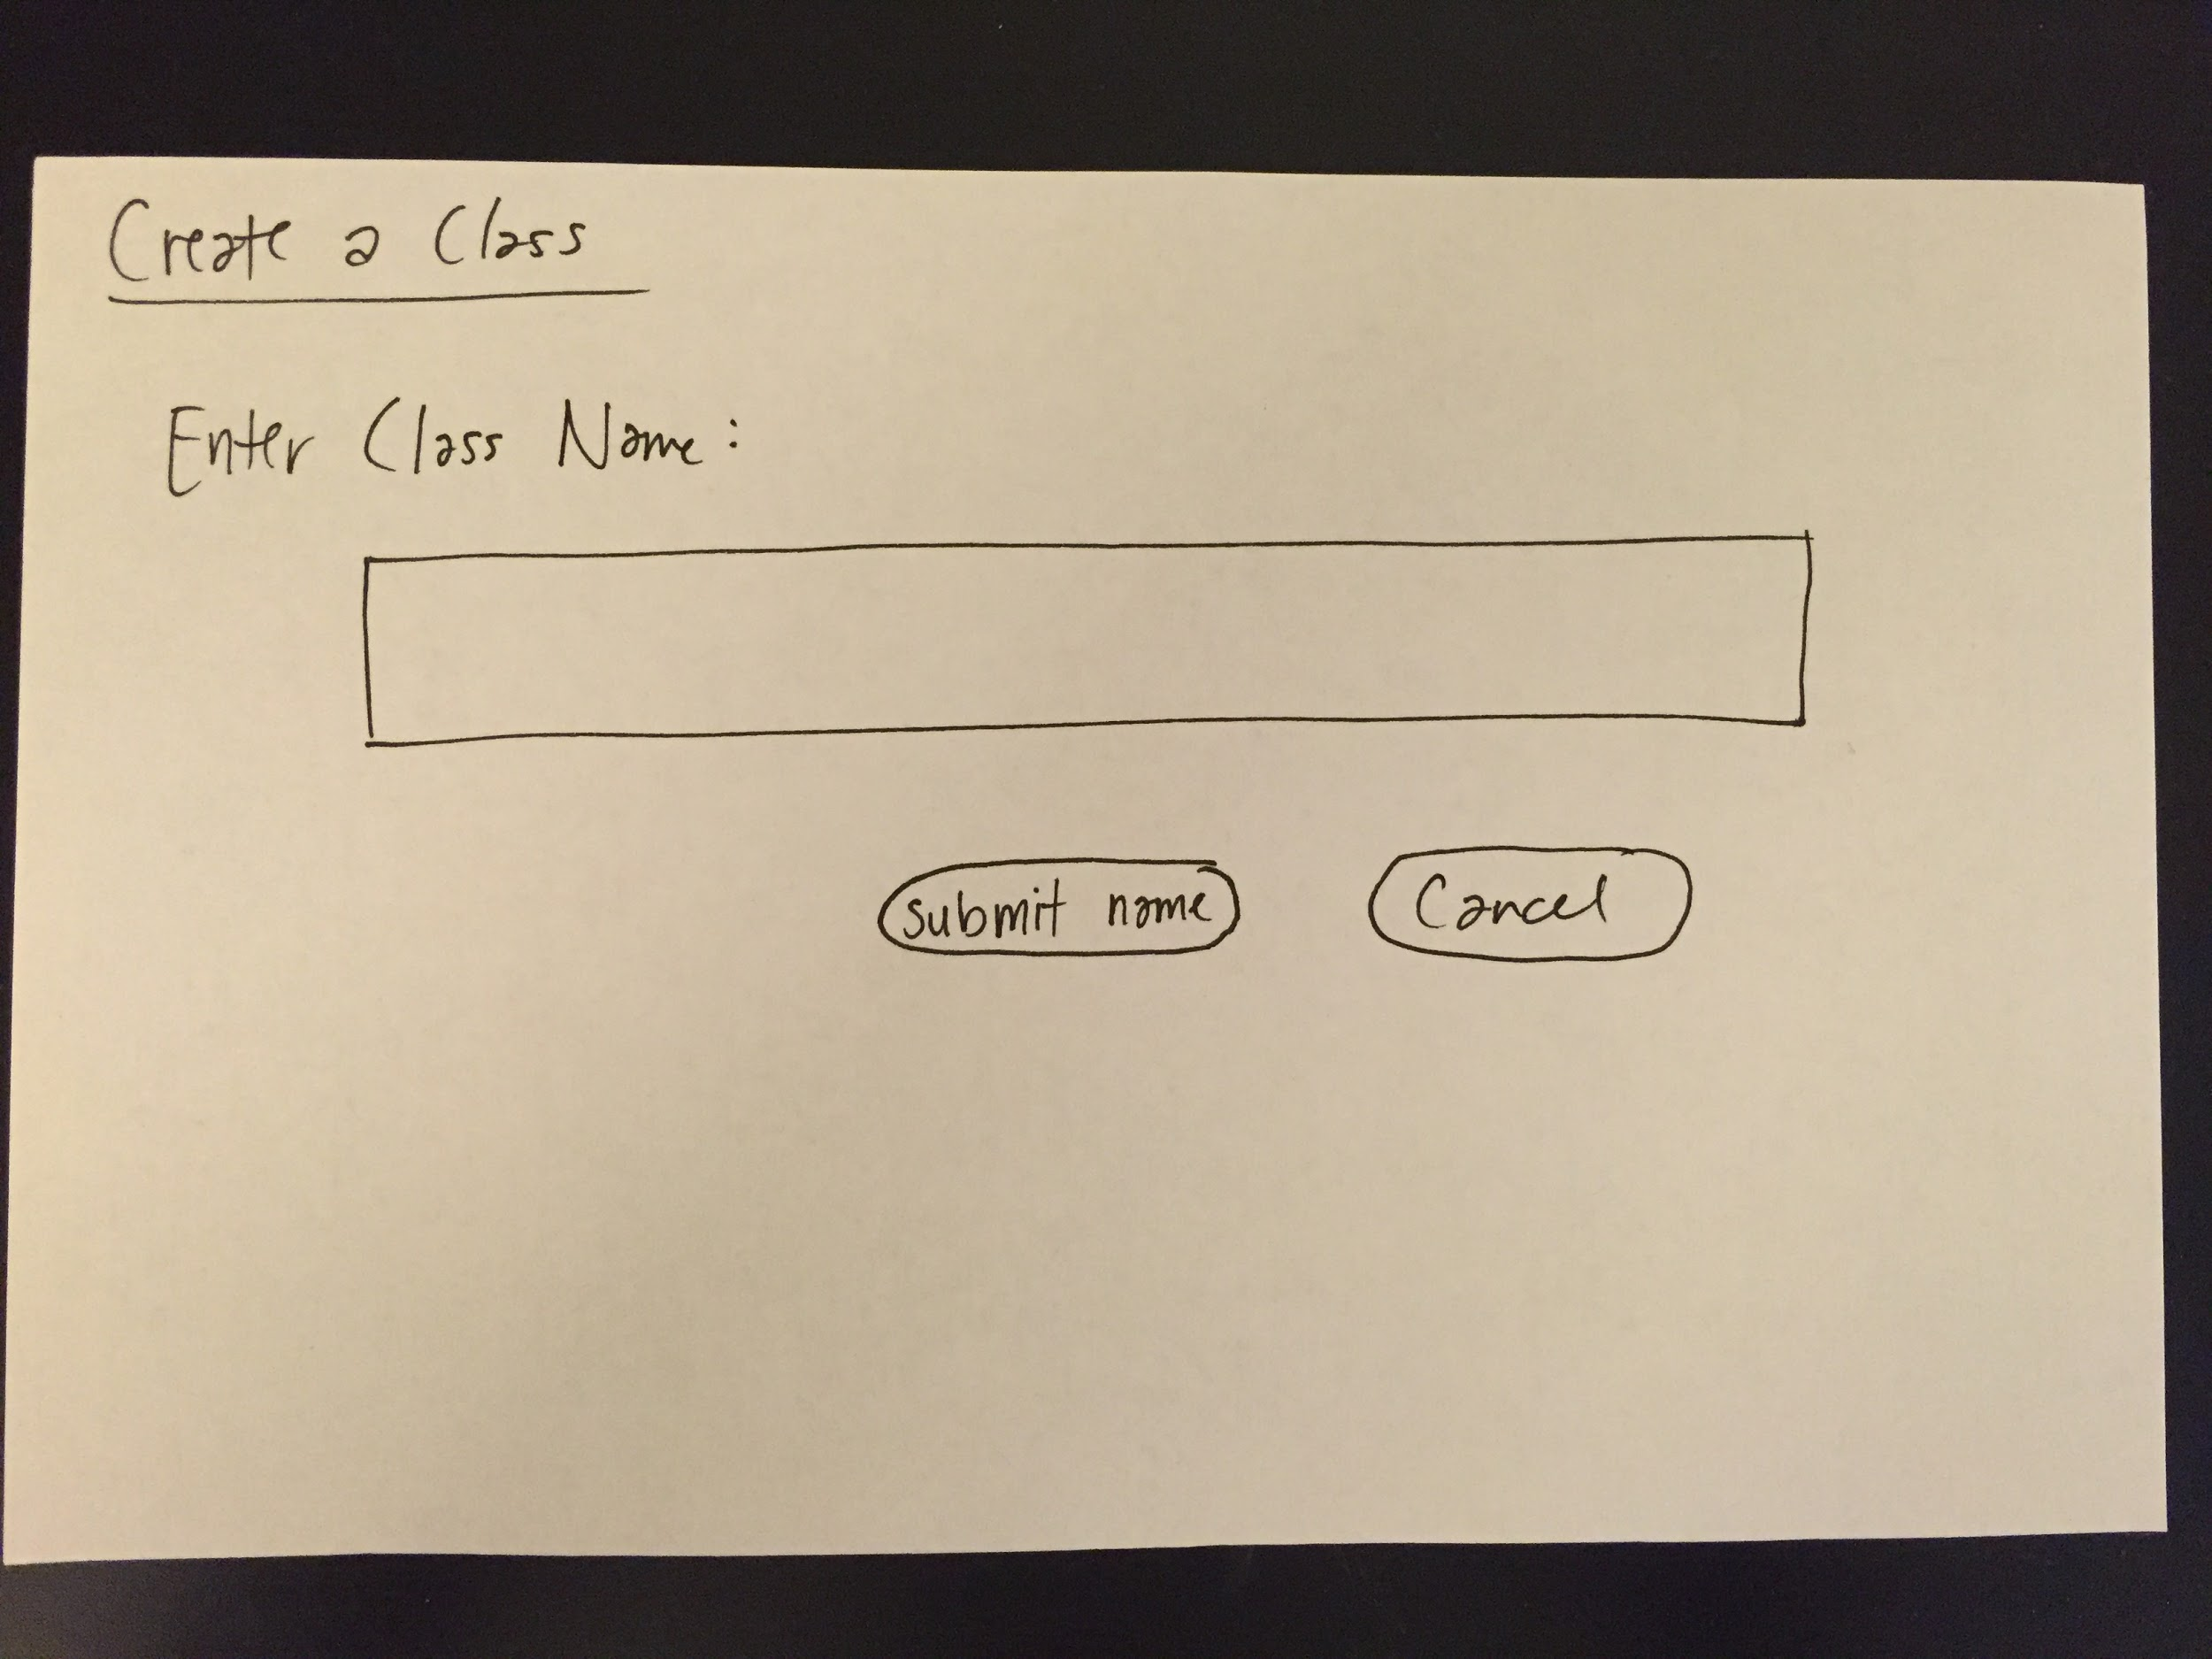 Create a Class
Enter Class Name:
submit name
Cancel